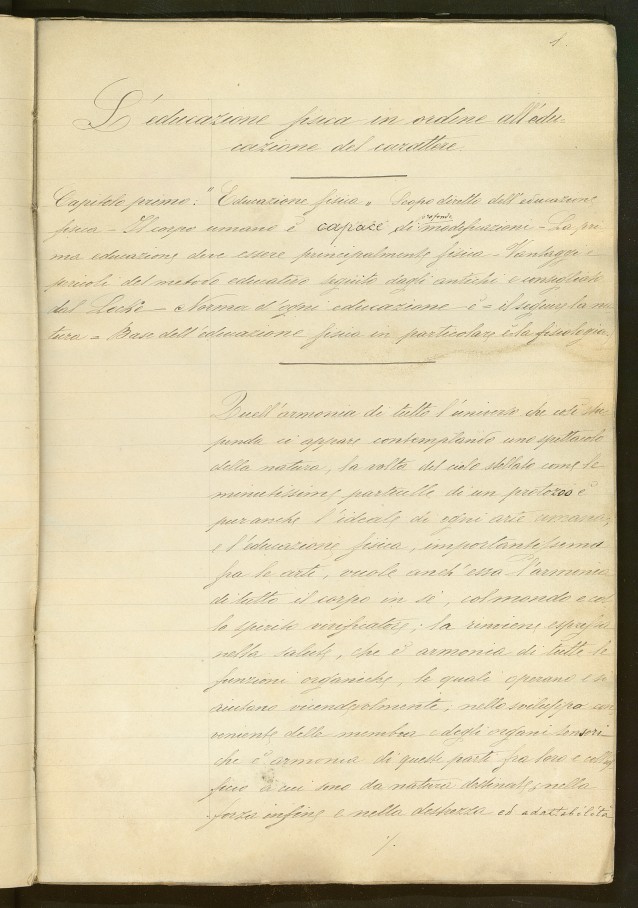 1.
L'educazione fisica in ordine all'edu-
cazione del carattere.
Capitolo primo: "Educazione fisica" Scopo diretto dell'educazione
fisica – Il corpo umano è capace di profonde modificazioni – La pri
ma educazione deve essere principalmente fisica – Vantaggi e
pericoli del metodo educativo seguito dagli antichi e consigliato
dal Locke – Norma d'ogni educazione è il seguire la na
tura – Base dell'educazione fisica in particolare è la fisiologia.
Quell'armonia di tutto l'universo che così stu
penda ci appare contemplando uno spettacolo
della natura, la volta del cielo stellato come le
minutissime particelle di un protozoo è
pur anche l'ideale di ogni arte umana
e l'educazione fisica, importantissima
fra le arti, vuole anch'essa l'armonia
di tutto il corpo in sè, col mondo e col
lo spirito vivificatore; la rinviene espressa
nella salute, che è armonia di tutte le
funzioni organiche, le quali operano e si
aiutano vicendevolmente, nello sviluppo con
veniente delle membra e degli organi sensori
che è armonia di queste parti fra loro e coll'uf
ficio a cui sono da natura destinate; nella
forza infine e nella destrezza ed adattabilità
./.